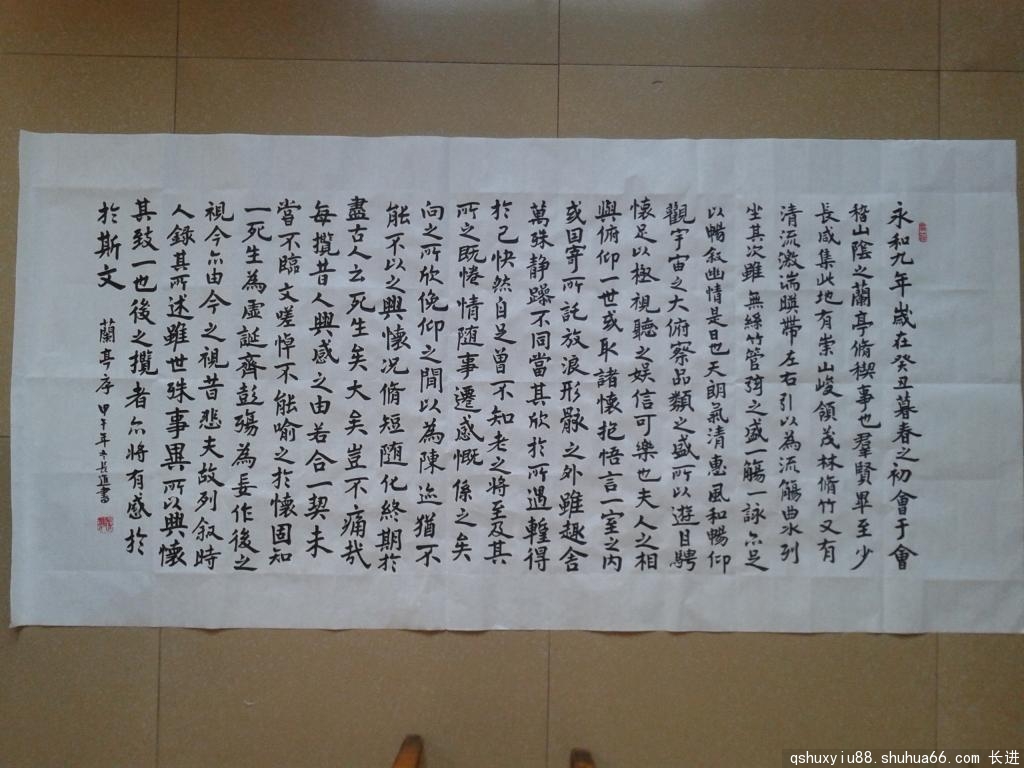 永和九年歲在癸丑暮春之初會于會
稽山陰之蘭亭脩禊事也羣賢畢至少
長咸集此地有崇山峻領茂林脩竹又有
清流激湍暎帶左右引以為流觴曲水列
坐其次雖無絲竹管弦之盛一觴一詠亦足
以暢叙幽情是日也天朗氣清惠風和暢仰
觀宇宙之大俯察品類之盛所以遊目騁
懷足以極視聽之娛信可樂也夫人之相
與俯仰一世或取諸懷抱悟言一室之內
或因寄所託放浪形骸之外雖趣舍
萬殊静躁不同當其欣於所遇蹔得
於己快然自足曾不知老之將至及其
所之既惓情随事遷感慨係之矣
向之所欣俛仰之間以為陳迹猶不
能不以之興懷况脩短随化終期於
盡古人云死生矣大矣豈不痛哉
每攬昔人興感之由若合一契未
嘗不臨文嗟悼不能喻之於懷固知
一死生為虛誕齊彭殤為妄作後之
視今亦由今之視昔悲夫故列叙時
人錄其所述雖世殊事異所以興懷
其致一也後之攬者亦將有感於
於斯文
蘭亭序 甲午年 長進書
qshuxyiu88.shuhua66.com 长进